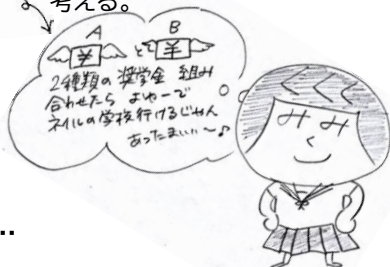 考える。
A B
¥ と ¥
2種類の奨学金 組み
合わせたら よゆーで
ネイルの学校行けるじゃん
あったまいい〜♪
みみ
..